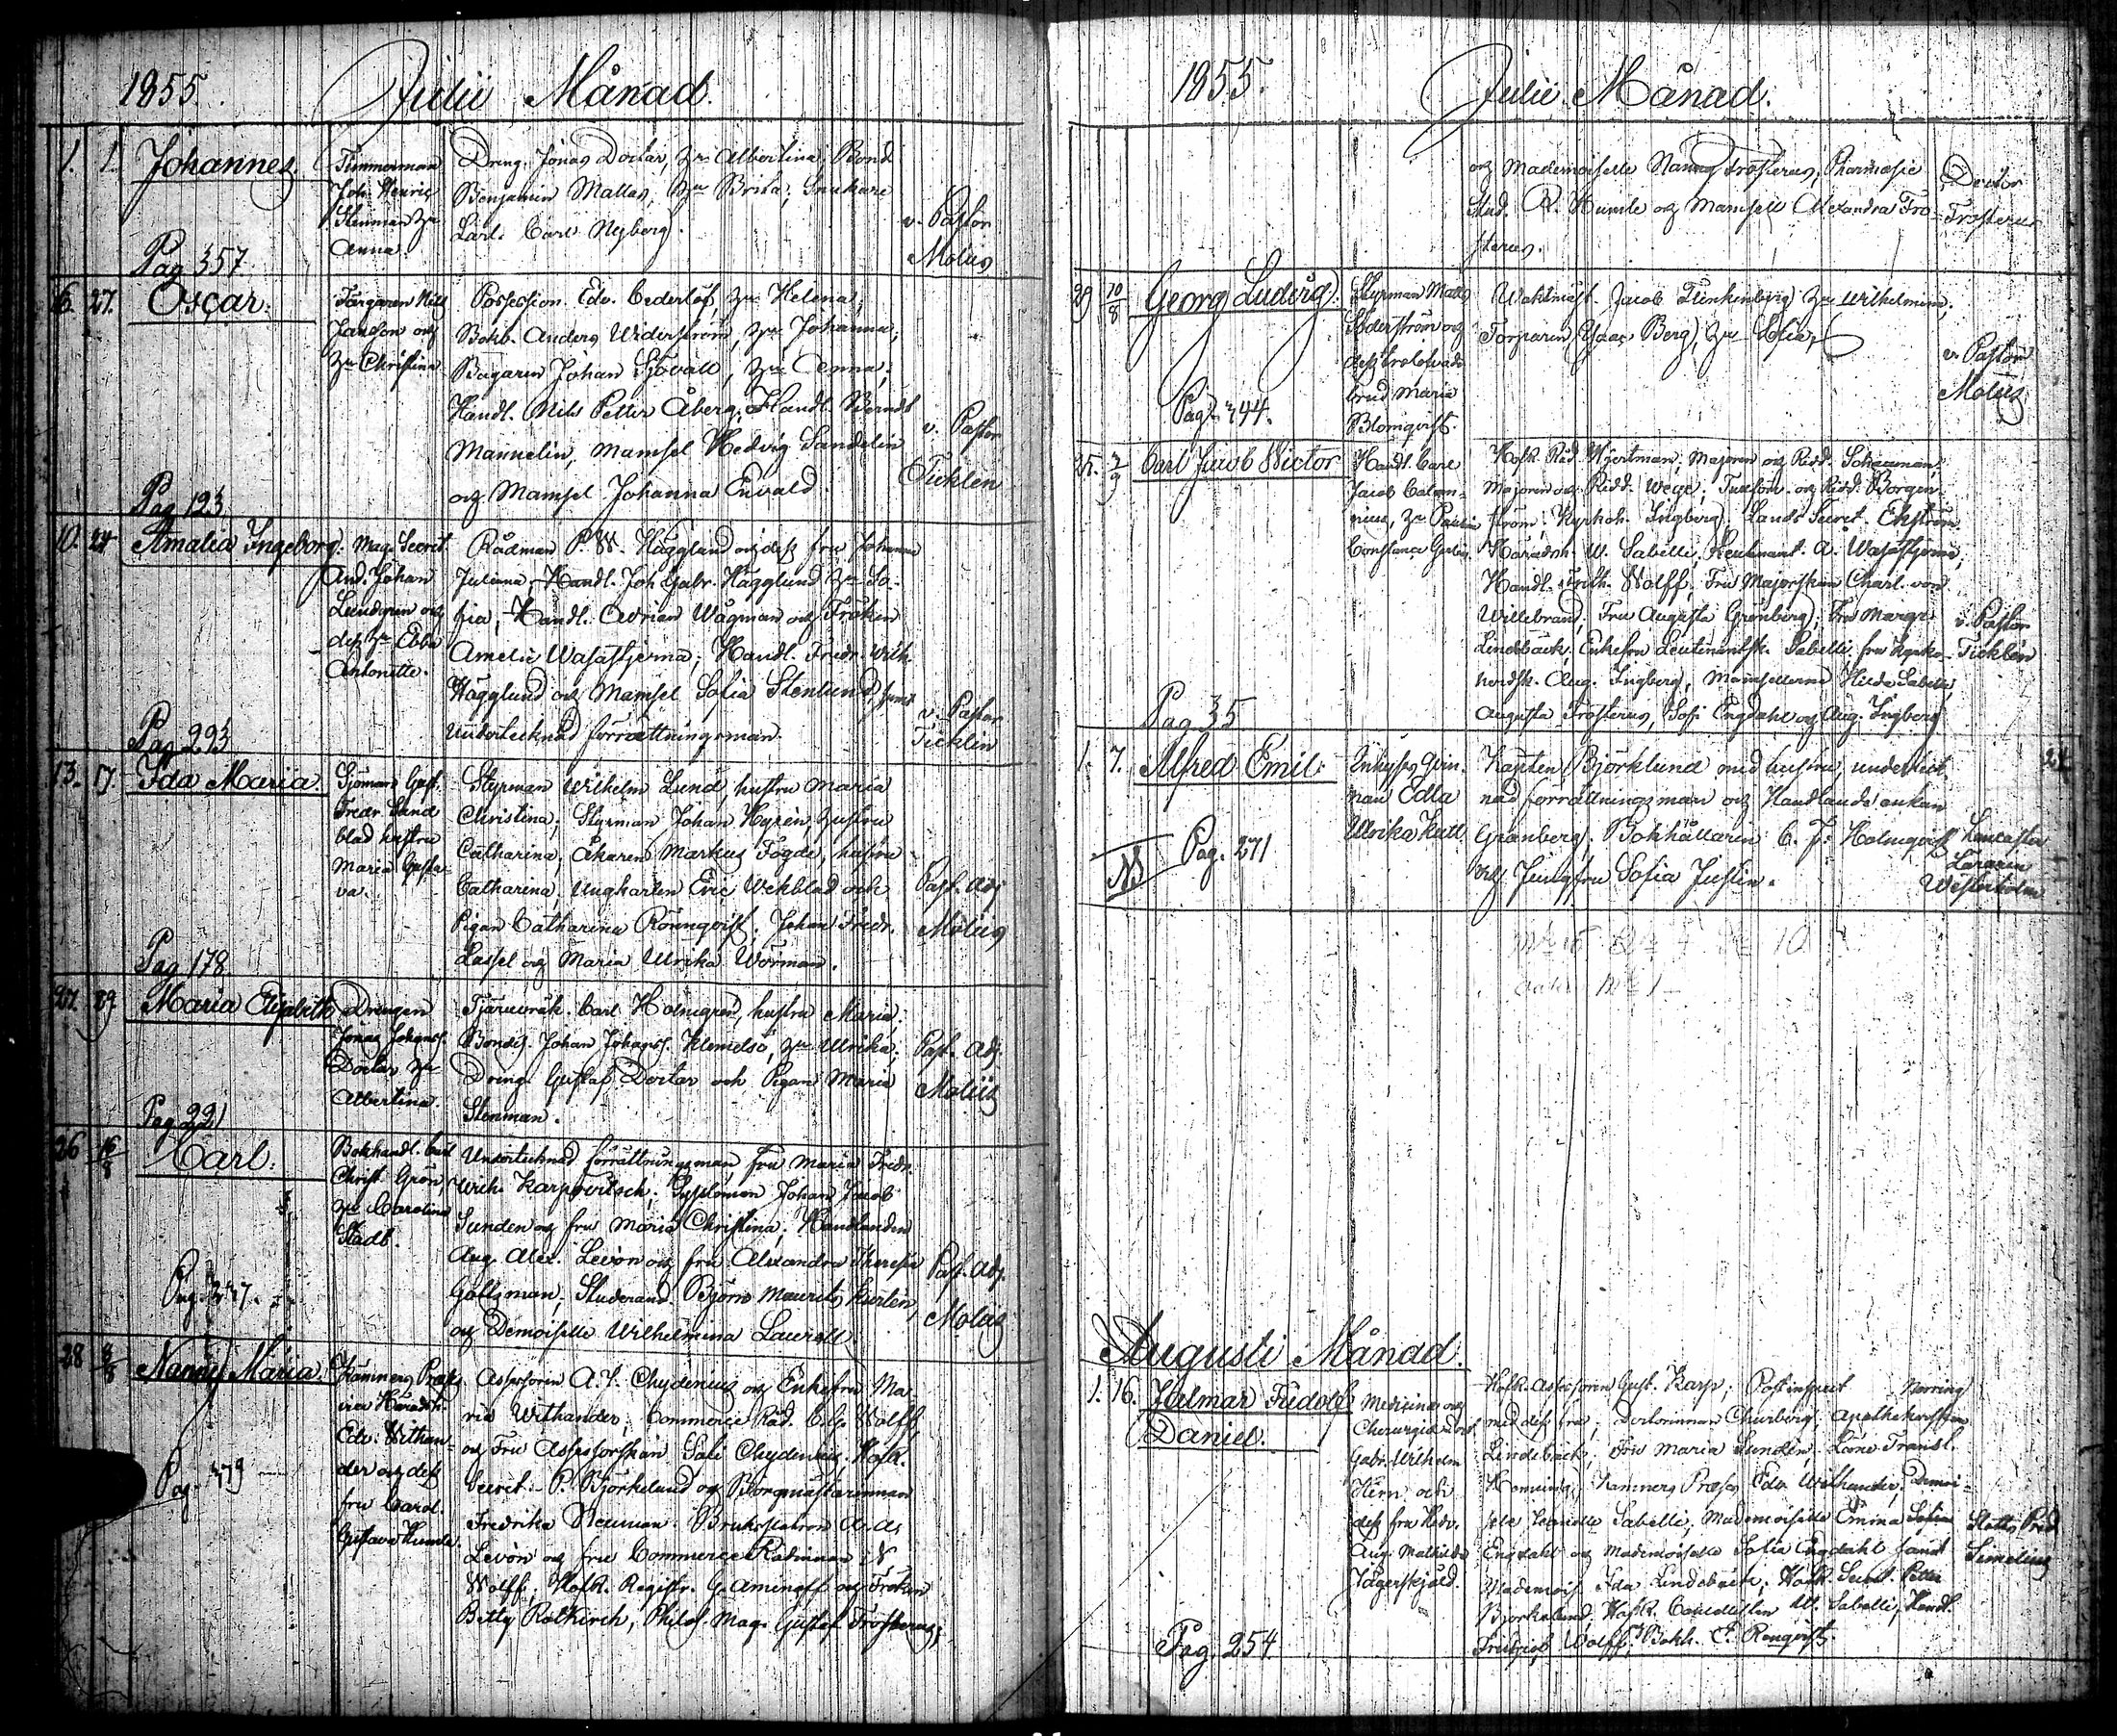 1855. Julii Månad.
1. 1. Johannes.
Pag 357
Timmerman
Joh. Henric
Stenman
Anna.
Dreng. Jonas Doctar, Albertina; Bond
Benjamin Mattas, Brita; Snickare
Lärl. Carl Nyberg.
v. Pastor
Molius
6. 27. Oscar.
Pag 123
Färgaren Nils
Janson och
Christina
Possession. Edv. Cederlöf, Helena;
Bokb. Anders Widerström, Johanna;
Bagaren Johan Sjövall, Anna;
Handl. Nils Petter Åberg; Handl. Berndt
Mannelin, Mamsel Hedvig Sandelin
och Mamsel Johanna Envald.
v. Pastor
Ticklen
10. 24 Amalia Ingeborg.
Pag 293
Mag. Secret.
And. Johan
Lundgren och
dess Ebba
Antonette.
Rådman P. W. Hägglund och dess fru Johanna
Juliana; Handl. Joh Gabr. Hägglund So-
fia; Handl. Adrian Wägman och Fröken
Amelie Wasastjerna; Handl. Fredr. Wilh.
Hägglund och Mamsel Sofia Stenlund, samt
undertecknad förrättningsman.
v. Pastor
Ticklen
13. 17. Ida Maria.
Pag 178
Sjöman Gust.
Fredr Sund
blad hustru
Maria Gusta-
va.
Styrman Wilhelm Lund, hustru Maria
Christina; Styrman Johan Hyrén, hustru
Catharina; Åkaren Markus Fogde, hustru
Catharina; Ungkarlen Eric Wekblad och
Pigan Catharina Rönnqvist; Johan Fredr.
Lassel och Maria Ulrika Worman.
Past. Adj
Molius
27. 29 Maria Elisabeth
Pag 221
Drengen
Jonas Johanss.
Doctar
Albertina.
Carl Holmgren, hustru Maria;
Bondes. Johan Johanss. Klemetsö, Ulrika;
Dreng Gustaf Doctar och Pigan Maria
Stenman.
Past. Adj.
Molius
26 16/8 Carl.
Pag. 347.
Bokhandl. Carl
Christ. Grön,
Carolina
Stadt.
Undertecknad förrättningsman, fru Maria Fredr.
Wilh. Karpovitsch; Johan Jacob
Sunden och fru Maria Christina; Handlanden
Aug. Alex. Levon och fru Alexandra Theresia
Galtzman; Studerand. Björn Maurits Kurten,
och Demoiselle Wilhelmina Laurell.
Past. Adj.
Molius
28 8/8 Nanny Maria.
Pag. 379
Kamners Præses
Edv. Withan-
der och dess
fru Carol.
Gustava Humle.
Assessoren A. F. Chydenius och Enkefru Ma-
ria Withander; Commerce Råd. C. G. Wolff,
och Fru Assessorskan Sali Chydenius; Hofr.
Secret. P. Björkelund och Borgmästarinnan
Fredrika Neuman; Brukspatron A. A.
Levon och fru Commerce Rådinnan N
Wolff; Hofr. Registr. G. Aminoff och Fröken
Betty Rotkirch; Philos. Mag. Gustaf Frosterus;
1855. Julii Månad.
och Mademoiselle Nanny Frosterus, Pharmacie
Stud. R. Humle och Mamsell Alexandra Fro-
sterus.
Doctor
Frosterus
29 10/8 Georg Ludvig.
Pag. 344.
Styrman Matts
Söderström och
dess trolofvade
brud Maria
Blomqvist.
Waktmäst. Jacob Flinkenberg Wilhelmina;
Torparen Isaac Berg, Sofia;
v. Pastor
Molius
25. 2/9 Carl Jacob Wictor
Pag 35
Handl. Carl
Jacob Calam-
nius, Paulin
Constance
Hofr. Råd. Majoren och Ridd. Schauman;
Majoren och Ridd. Wege; och Ridd. Borgen
ström; Ingberg; Lands Secret. Ekström
W. Sabelli; Leutenant. A. Wasastjerna;
Handl. Frith. Wolff; Fru Majorskan Charl. von
Willebrand; Fru Augusta Grönberg; Fru Margr.
Lindebäck; Enkefru Leutenantsk. Sabelli; fru
Aug. Ingberg; Mamsellerna Hilda Sabelli,
Augusta Frosterus, Sofi Engdahl och Aug. Ingberg
v. Pastor
Ticklén
1. 7. Alfred Emil.
Pag. 271
Inhyses Qvin-
nan Edla
Ulrika
Kapten Björklund med hustru; underteck-
nad förrättningsman och Handlands enkan
Granberg; Bokhållaren C. F. Holmqvist
och Jungfru Sofia Justin.
Lancaster
Läraren
Westerholm
Augusti Månad.
1. 16. Hilmar Fridolf
Daniel.
Pag. 254
Medicine och
Chirurgie
Gabr. Wilhelm
Hirn och
dess fru Hedv.
Aug. Mathilda
Jägerskjöld.
Hofr. Assessoren Gust. Karp; Postinspect Norring
med dess fru; Doctorinnan Churberg; Apothekerskan
Lindebäck; Fru Maria Sundén; Läns Transl.
Henning; Kamners Præses Edv Withander; Demoi-
selle Sabelli; Mademoiselle Emina
Engdahl och Mademoiselle Sofia Engdahl samt
Mademois. Ida Lindebäck; Hofr. Secret. Petter
Björkelund; Hofr. W. Sabelli; Handl.
Wolff; Bokh. E. Renqvist.
Slotts Pred
Simelius